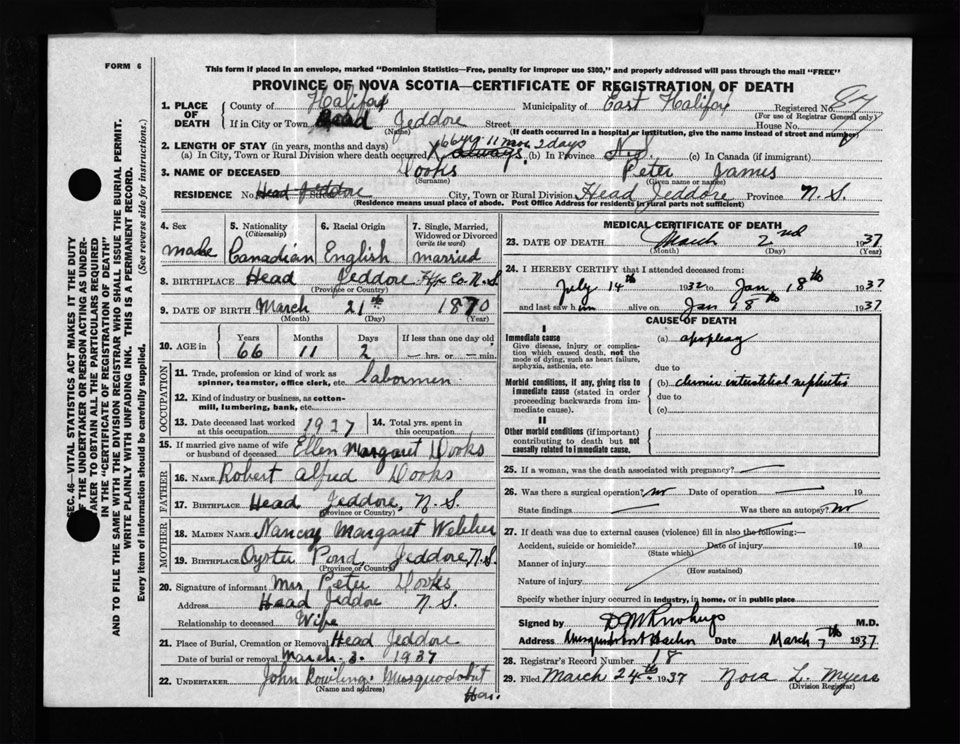 FORM 6
This form if placed in an envelope, marked "Dominion Statistics—Free, penalty for improper use $300," and properly addressed will pass through the mail "FREE"
PROVINCE OF NOVA SCOTIA—CERTIFICATE OF REGISTRATION OF DEATH
1. PLACE OF DEATH County of Halifax Municipality of East Halifax Registered No.
(For use of Registrar General only)
If in City or Town Head Jeddore Street House No.
(Name) (If death occurred in a hospital or institution, give the name instead of street and number)
2. LENGTH OF STAY (in years, months and days) 66 yrs 11 mos 2 days
(a) In City, Town or Rural Division where death occurred Always (b) In Province (c) In Canada (if immigrant)
3. NAME OF DECEASED Dooks Peter James
(Surname) (Given name or names)
RESIDENCE No. Head Jeddore Street City, Town or Rural Division Head Jeddore Province N.S.
(Residence means usual place of abode. Post Office Address for residents in rural parts not sufficient)
4. Sex male
5. Nationality (Citizenship) Canadian
6. Racial Origin English
7. Single, Married, Widowed or Divorced (write the word) married
8. BIRTHPLACE Head Jeddore Hfx Co. N.S.
(Province or Country)
9. DATE OF BIRTH March 21st 1870
(Month) (Day) (Year)
10. AGE in Years 66 Months 11 Days 2 If less than one day old hrs. or min.
OCCUPATION
11. Trade, profession or kind of work as spinner, teamster, office clerk, etc. labormen
12. Kind of industry or business, as cotton-mill, lumbering, bank, etc.
13. Date deceased last worked at this occupation 1927
14. Total yrs. spent in this occupation
15. If married give name of wife or husband of deceased Ellen Margaret Dooks
FATHER
16. NAME Robert Alfred Dooks
17. BIRTHPLACE Head Jeddore, N.S.
(Province or Country)
MOTHER
18. MAIDEN NAME Nancy Margaret Webber
19. BIRTHPLACE Oyster Pond, Jeddore N.S.
(Province or Country)
20. Signature of informant Mrs Peter Dooks
Address Head Jeddore N.S.
Relationship to deceased Wife
21. Place of Burial, Cremation or Removal Head Jeddore
Date of burial or removal March 3. 1937
22. UNDERTAKER John Rowling. Musquodobit Har.
(Name and address)
MEDICAL CERTIFICATE OF DEATH
23. DATE OF DEATH March 2nd 1937
(Month) (Day) (Year)
24. I HEREBY CERTIFY that I attended deceased from:
July 14th 1932 to Jan 18th 1937
and last saw him alive on Jan 18th 1937
CAUSE OF DEATH
I
Immediate cause
Give disease, injury or complication which caused death, not the mode of dying, such as heart failure, asphyxia, asthenia, etc.
(a) apoplexy
due to
Morbid conditions, if any, giving rise to immediate cause (stated in order proceeding backwards from immediate cause).
(b) chronic interstitial nephritis
due to
(c)
II
Other morbid conditions (if important) contributing to death but not causally related to immediate cause.
25. If a woman, was the death associated with pregnancy?
26. Was there a surgical operation? no Date of operation 19
State findings Was there an autopsy? no
27. If death was due to external causes (violence) fill in also the following:—
Accident, suicide or homicide? Date of injury 19
(State which)
Manner of injury
(How sustained)
Nature of injury
Specify whether injury occurred in industry, in home, or in public place
Signed by M.D.
Address Musquodoboit Harbor Date March 7th 1937
28. Registrar's Record Number 18
29. Filed March 24th 1937 Nora L. Myers
(Division Registrar)
SEC. 46—VITAL STATISTICS ACT MAKES IT THE DUTY
OF THE UNDERTAKER OR PERSON ACTING AS UNDER-
TAKER TO OBTAIN ALL THE PARTICULARS REQUIRED
IN THE "CERTIFICATE OF REGISTRATION OF DEATH"
AND TO FILE THE SAME WITH THE DIVISION REGISTRAR WHO SHALL ISSUE THE BURIAL PERMIT.
WRITE PLAINLY WITH UNFADING INK. THIS IS A PERMANENT RECORD.
Every item of information should be carefully supplied. (See reverse side for instructions.)